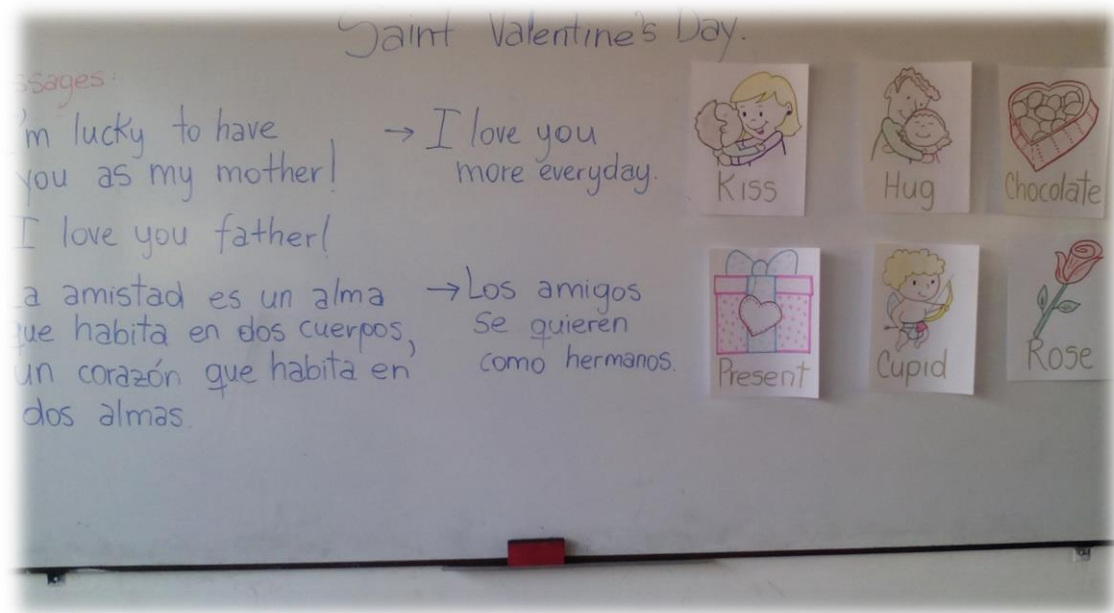 Saint Valentine's Day.
ssages:
'm lucky to have
you as my mother!
→ I love you
more everyday.
I love you father!
La amistad es un alma
que habita en dos cuerpos,
un corazón que habita en
dos almas.
→ Los amigos
se quieren
como hermanos.
Kiss
Hug
Chocolate
Present
Cupid
Rose